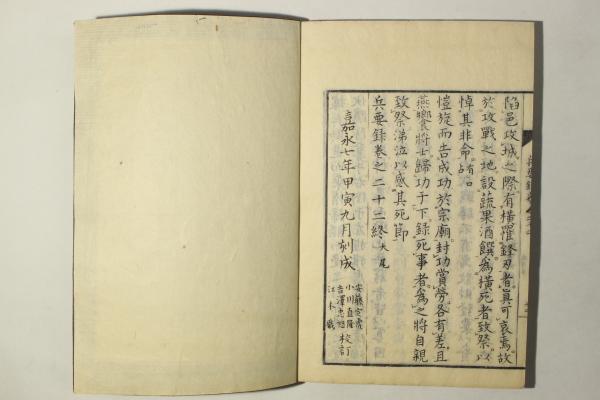 陷邑攻城之際有橫罹鋒刃者眞可哀焉故
於攻戰之地設蔬果酒饌爲橫死者致祭以
悼其非命占
愷旋而告成功於宗廟封功賞勞各有差且
燕饗將士歸功于下錄死事者爲之將自親
致祭涕泣以感其死節
兵要錄卷之二十二終大尾
嘉永七年甲寅九月刻成
安藤定虎
小川直隆
吉澤忠恕
江木戩
校訂